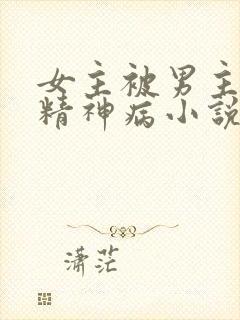 女主被男主
精神病小說
潇茫